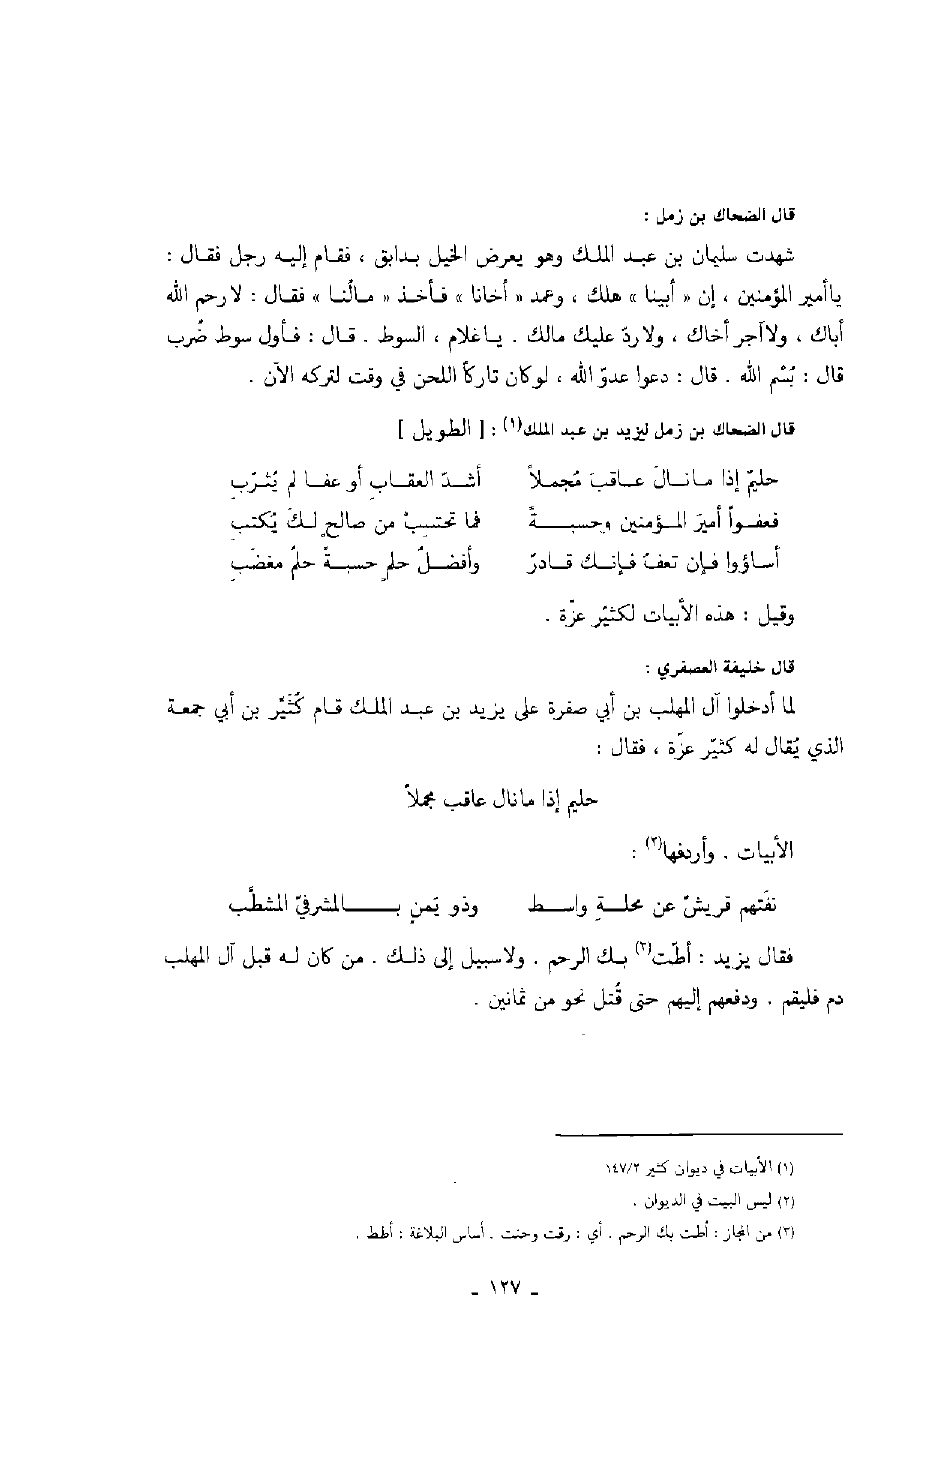 قال الضحاك بن زمل :
شهدت سليمان بن عبد الملك وهو يعرض الخيل بدابق ، فقام إليه رجل فقال :
ياأمير المؤمنين ، إن « أبينا » هلك ، وعمد « أخانا » فأخذ « مالَنا » فقال : لا رحم الله
أباك ، ولاآجر أخاك ، ولاردّ عليك مالك . ياغلام ، السوط . قال : فأول سوط ضُرب
قال : بُسْم الله . قال : دعوا عدوّ الله ، لوكان تاركاً اللحن في وقت لتركه الآن .
قال الضحاك بن زمل ليزيد بن عبد الملك(١) : [ الطويل ]
حليمٌ إذا مانالَ عاقبَ مُجملاً أشدّ العقابِ أو عفا لم يُثرّبِ
فعفواً أميرَ المؤمنين وحسبةً فما تحتسبْ من صالحٍ لكَ يُكتبِ
أساؤوا فإن تعفُ فإنك قادرٌ وأفضلُ حلمٍ حسبةً حلمُ مغضَبِ
وقيل : هذه الأبيات لكثيّر عزّة .
قال خليفة العصفري :
لما أدخلوا آل المهلب بن أبي صفرة على يزيد بن عبد الملك قام كُثَيّر بن أبي جمعة
الذي يُقال له كثيّر عزّة ، فقال :
حليم إذا مانال عاقب مجملاً
الأبيات . وأردفها(٢) :
نفَتهم قريشٌ عن محلةِ واسط وذو يَمنٍ بالمشرفيّ المشطَّبِ
فقال يزيد : أطّت(٣) بك الرحم . ولاسبيل إلى ذلك . من كان له قبل آل المهلب
دم فليقم . ودفعهم إليهم حتى قُتل نحو من ثمانين .
(١) الأبيات في ديوان كثير ١٤٧/٢
(٢) ليس البيت في الديوان .
(٣) من المجاز : أطت بك الرحم . أي : رقت وحنت . أساس البلاغة : أطط .
- ١٢٧ -